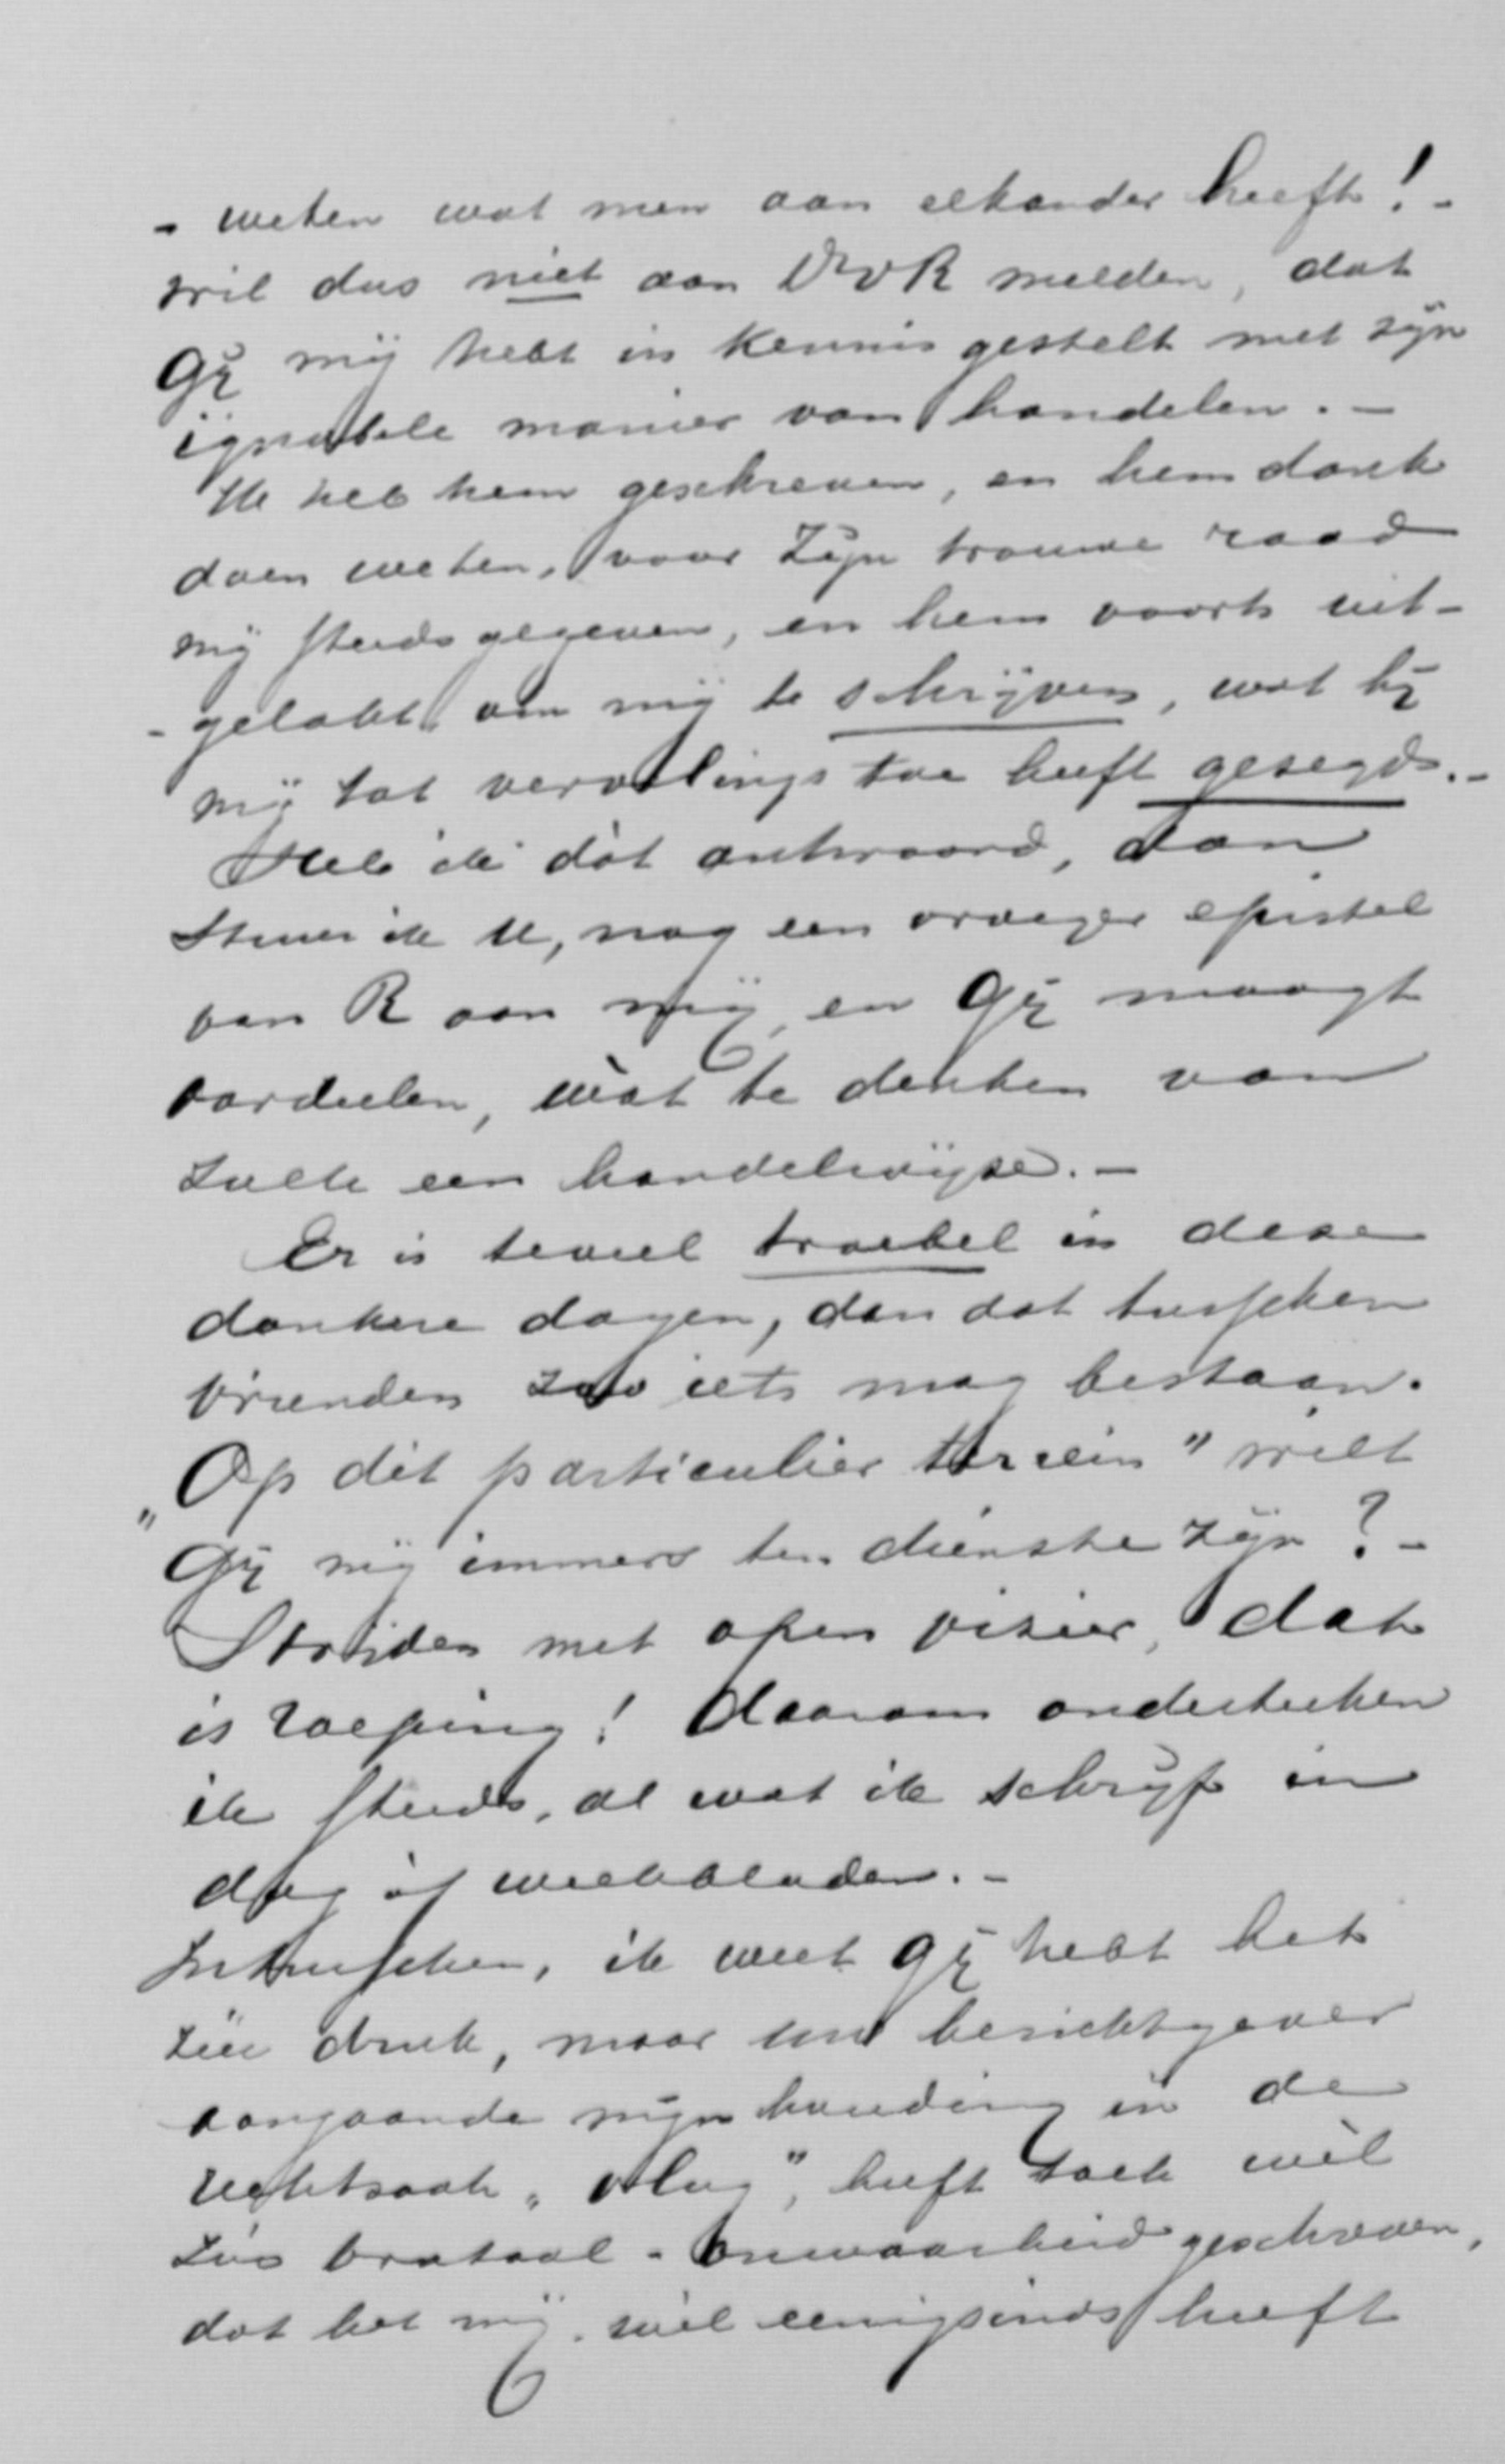 - weten wat men aan elkander heeft! -
wil dus niet aan DrvR melden, dat
Gij mij hebt in kennis gestelt met zijn
ignobele manier van handelen. -
Ik heb hem geschreven, en hem dank
doen weten, voor zijn trouwe raad
mij steeds gegeven, en hem voorts uit-
- gelokt om mij te schrijven, wat hij
mij tot vervelings toe heeft gesegd. -
Heb ik dàt antwoord, dan
Stuur ik U, nog een vroeger epistel
van R aan mij, en Gij moogt
oordeelen, wàt te denken van
zulk een handelwijse. -
Er is teveel troebel in dese
donkere dagen, dan dat tusschen
vrienden zoo iets mag bestaan.
„Op dit particulier terrein" wilt
Gij mij immers ten dienste zijn? -
Strijden met open visier, dat
is roeping! Daarom onderteeken
ik steeds, al wat ik schrijf in
dag òf weekbladen. -
Intusschen, ik weet gij hebt het
zéér druk, maar uw berichtgever
aangaande mijn houding in de
rechtsaak „ vlug", heeft toch wèl
zóó brutaal - onwaarheid geschreven,
dat het mij wèl eenigsinds heeft